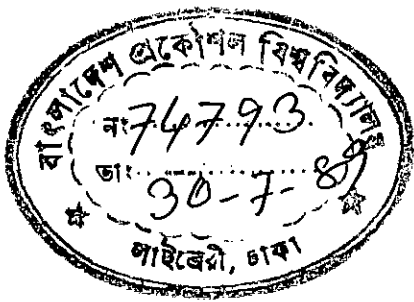 বাংলাদেশ প্রকৌশল বিশ্ববিদ্যালয়
নং 74793
তাং 30-7-89
লাইব্রেরী, ঢাকা